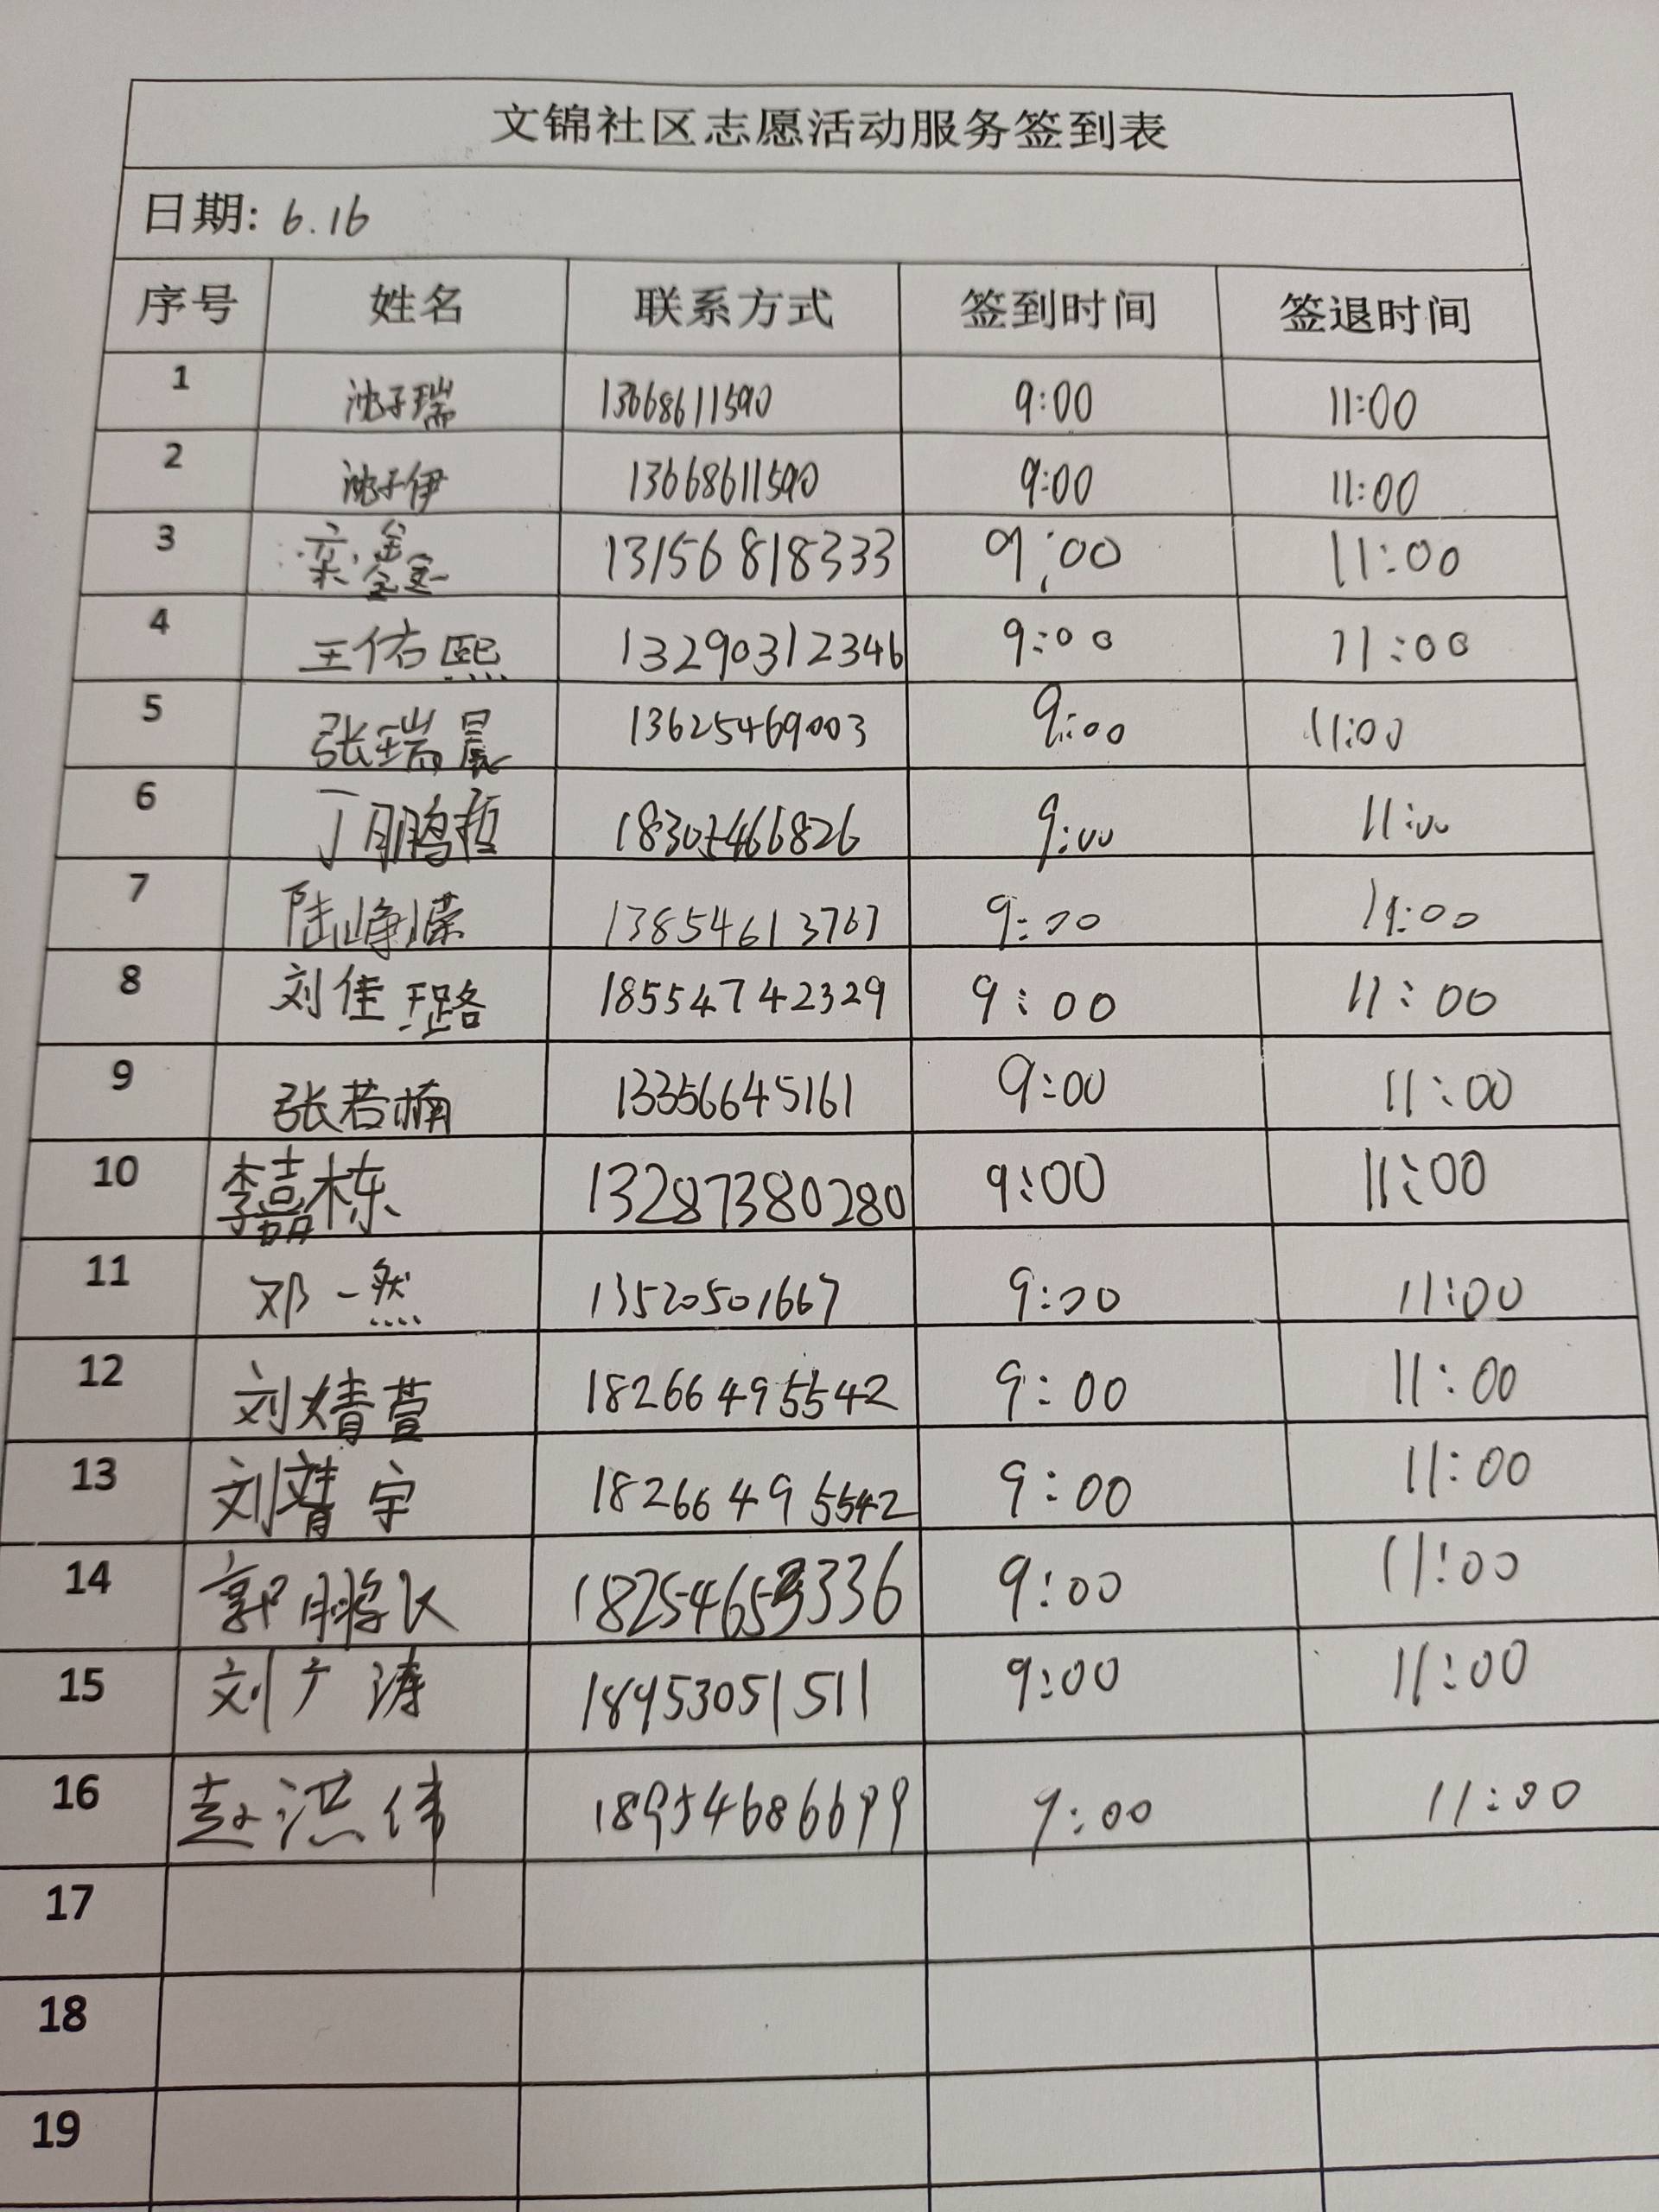 文锦社区志愿活动服务签到表
日期: 6.16
序号 姓名 联系方式 签到时间 签退时间
1 沈子瑞 13668611590 9:00 11:00
2 沈子伊 13668611590 9:00 11:00
3 栾鑫 13156818333 9:00 11:00
4 王佑熙 13290312346 9:00 11:00
5 张瑞晨 13625469003 9:00 11:00
6 丁鹏哲 18305466826 9:00 11:00
7 陆峥嵘 13854613767 9:00 11:00
8 刘佳璐 18554742329 9:00 11:00
9 张若楠 13356645161 9:00 11:00
10 李嘉栋 13287380280 9:00 11:00
11 邓一然 13520501667 9:00 11:00
12 刘婧萱 18266495542 9:00 11:00
13 刘靖宇 18266495542 9:00 11:00
14 郭鹏 9:00 11:00
15 刘广涛 18953051511 9:00 11:00
16 赵洪伟 18954686699 9:00 11:00
17
18
19